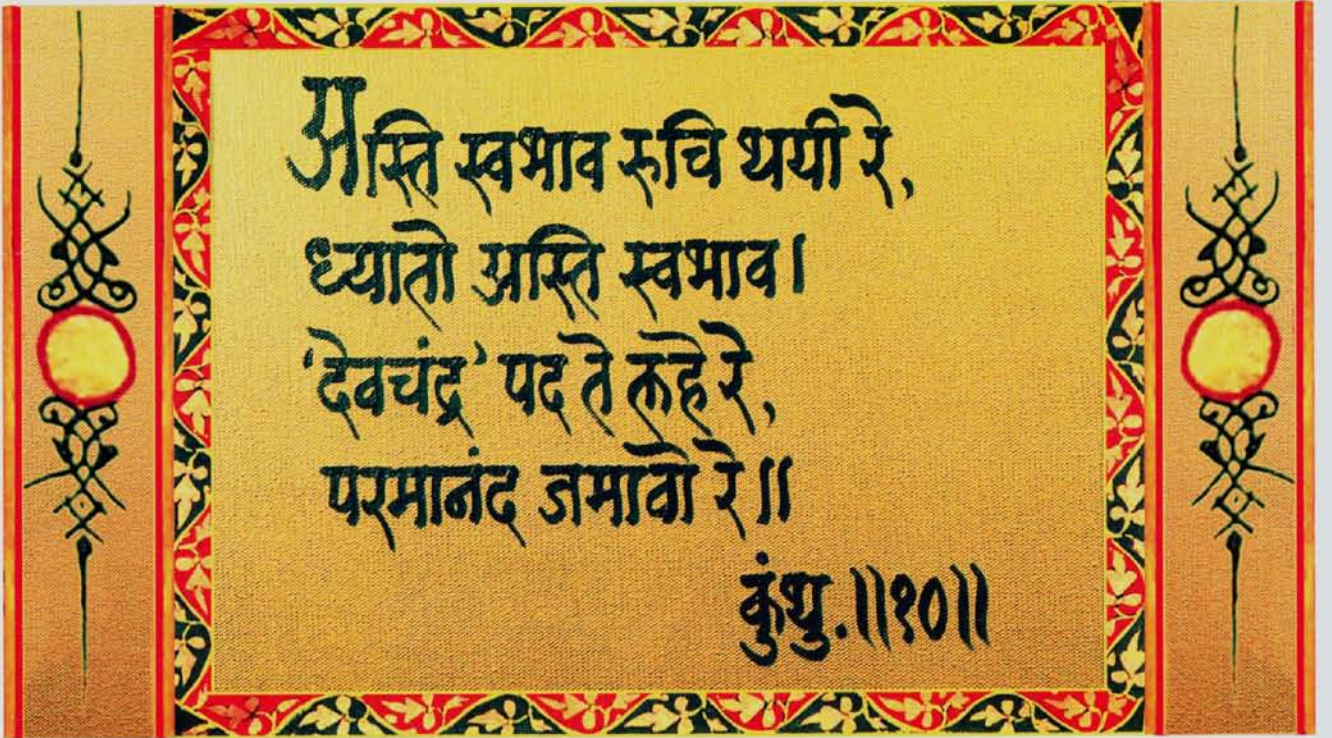 अस्ति स्वभाव रुचि थयी रे,
ध्यातो अस्ति स्वभाव।
'देवचंद्र' पद ते लहे रे,
परमानंद जमावो रे॥
कुंथु.॥१०॥